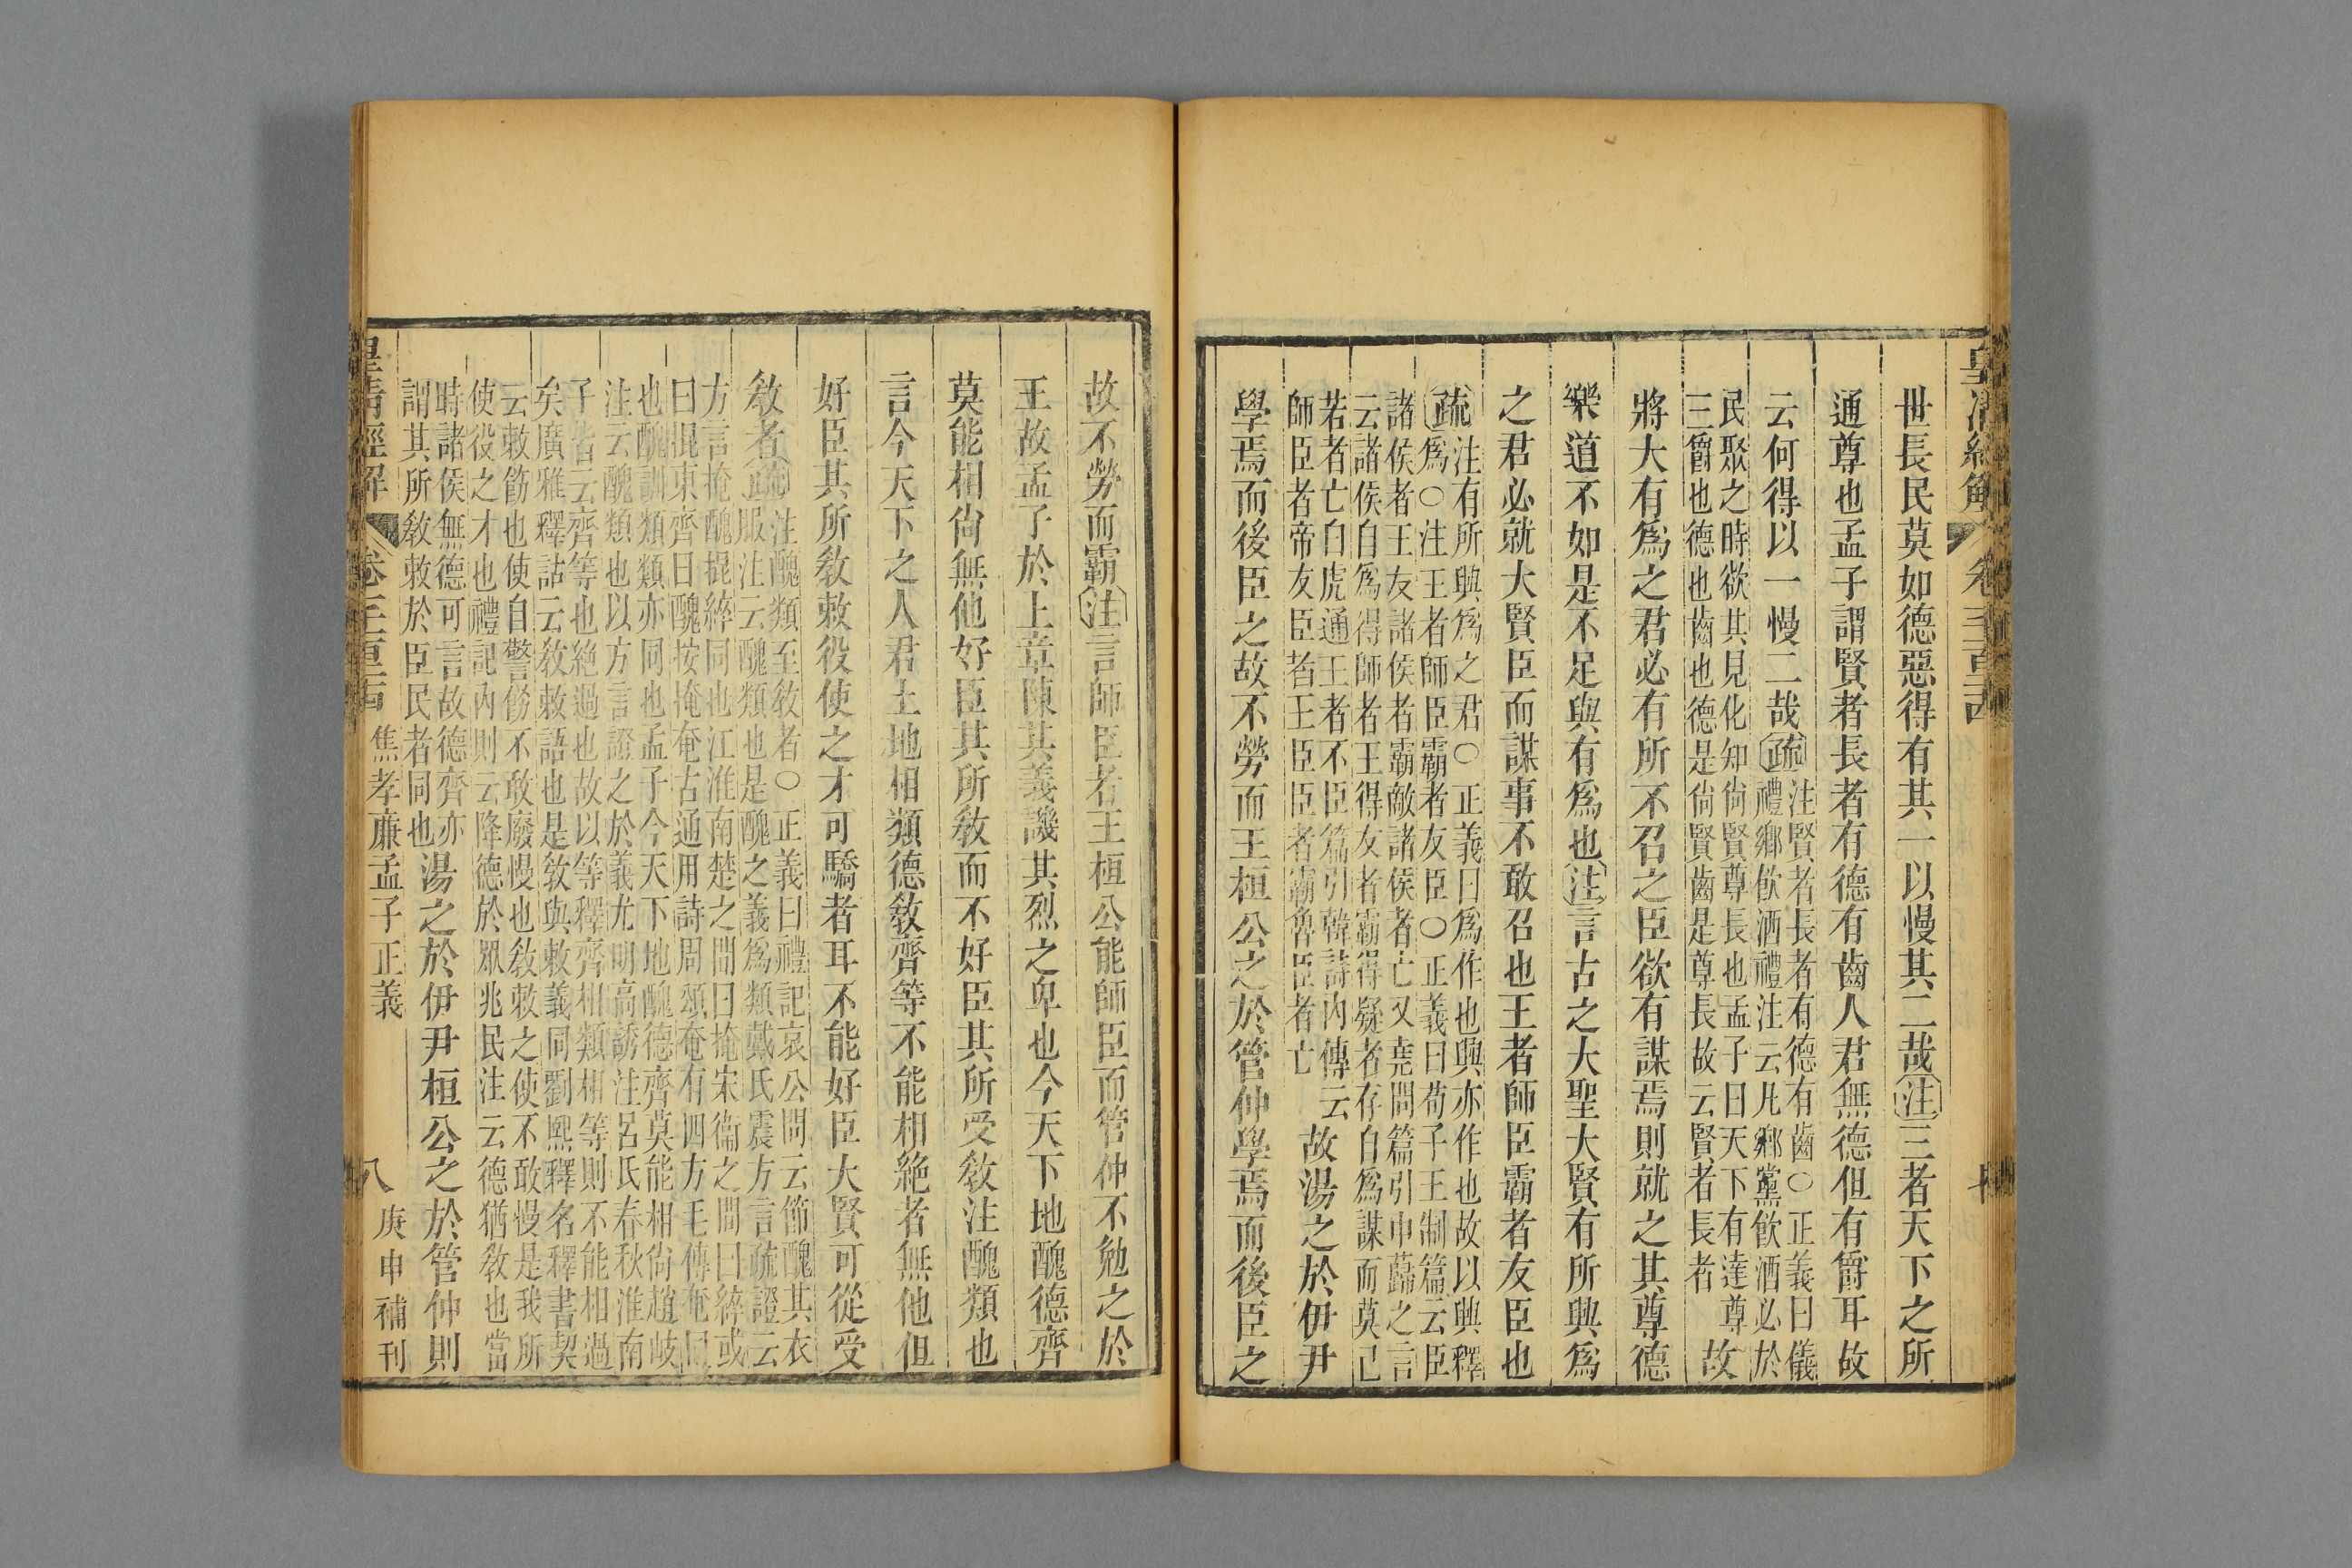 皇清經解
世長民莫如德惡得有其一以慢其二哉注三者天下之所
通尊也孟子謂賢者長者有德有齒人君無德但有爵耳故
云何得以一慢二哉疏
注賢者長者有德有齒○正義曰儀
禮鄉飲酒禮注云凡鄉黨飲酒必於
民聚之時欲其見化知尙賢尊長也孟子曰天下有達尊
三爵也德也齒也德是尙賢齒是尊長故云賢者長者
故
將大有爲之君必有所不召之臣欲有謀焉則就之其尊德
樂道不如是不足與有爲也注言古之大聖大賢有所興爲
之君必就大賢臣而謀事不敢召也王者師臣霸者友臣也
疏
注有所興爲之君○正義曰爲作也興亦作也故以興釋
爲○注王者師臣霸者友臣○正義曰荀子王制篇云臣
諸侯者王友諸侯者霸敵諸侯者亡又堯問篇引中蘬之言
云諸侯自爲得師者王得友者霸得疑者存自爲謀而莫己
若者亡白虎通王者不臣篇引韓詩內傳云
師臣者帝友臣者王臣臣者霸魯臣者亡
故湯之於伊尹
學焉而後臣之故不勞而王桓公之於管仲學焉而後臣之
故不勞而霸注言師臣者王桓公能師臣而管仲不勉之於
王故孟子於上章陳其義譏其烈之卑也今天下地醜德齊
莫能相尙無他好臣其所敎而不好臣其所受敎注醜類也
言今天下之人君土地相類德敎齊等不能相絶者無他但
好臣其所敎敕役使之才可驕者耳不能好臣大賢可從受
敎者疏
注醜類至敎者○正義曰禮記哀公問云節醜其衣
服注云醜類也是醜之義爲類戴氏震方言疏證云
方言掩醜掍綷同也江淮南楚之間曰掩宋衞之間曰綷或
曰掍東齊曰醜按掩奄古通用詩周頌奄有四方毛傳奄同
也醜訓類類亦同也孟子今天下地醜德齊莫能相尙趙岐
注云醜類也以方言證之於義尤明高誘注呂氏春秋淮南
子皆云齊等也絶過也故以等釋齊相類相等則不能相過
矣廣雅釋詁云敎敕語也是敎與敕義同劉熙釋名釋書契
云敕飭也使自警飭不敢廢慢也敎敕之使不敢慢是我所
使役之才也禮記內則云降德於眾兆民注云德猶敎也當
時諸侯無德可言故德齊亦
謂其所敎敕於臣民者同也
湯之於伊尹桓公之於管仲則
皇清經解
焦孝廉孟子正義
八
庚申補刊